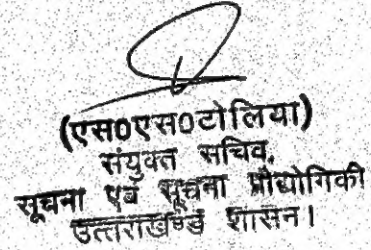 (एस0एस0टोलिया)
संयुक्त सचिव,
सूचना एवं सूचना प्रौद्योगिकी
उत्तराखण्ड शासन।